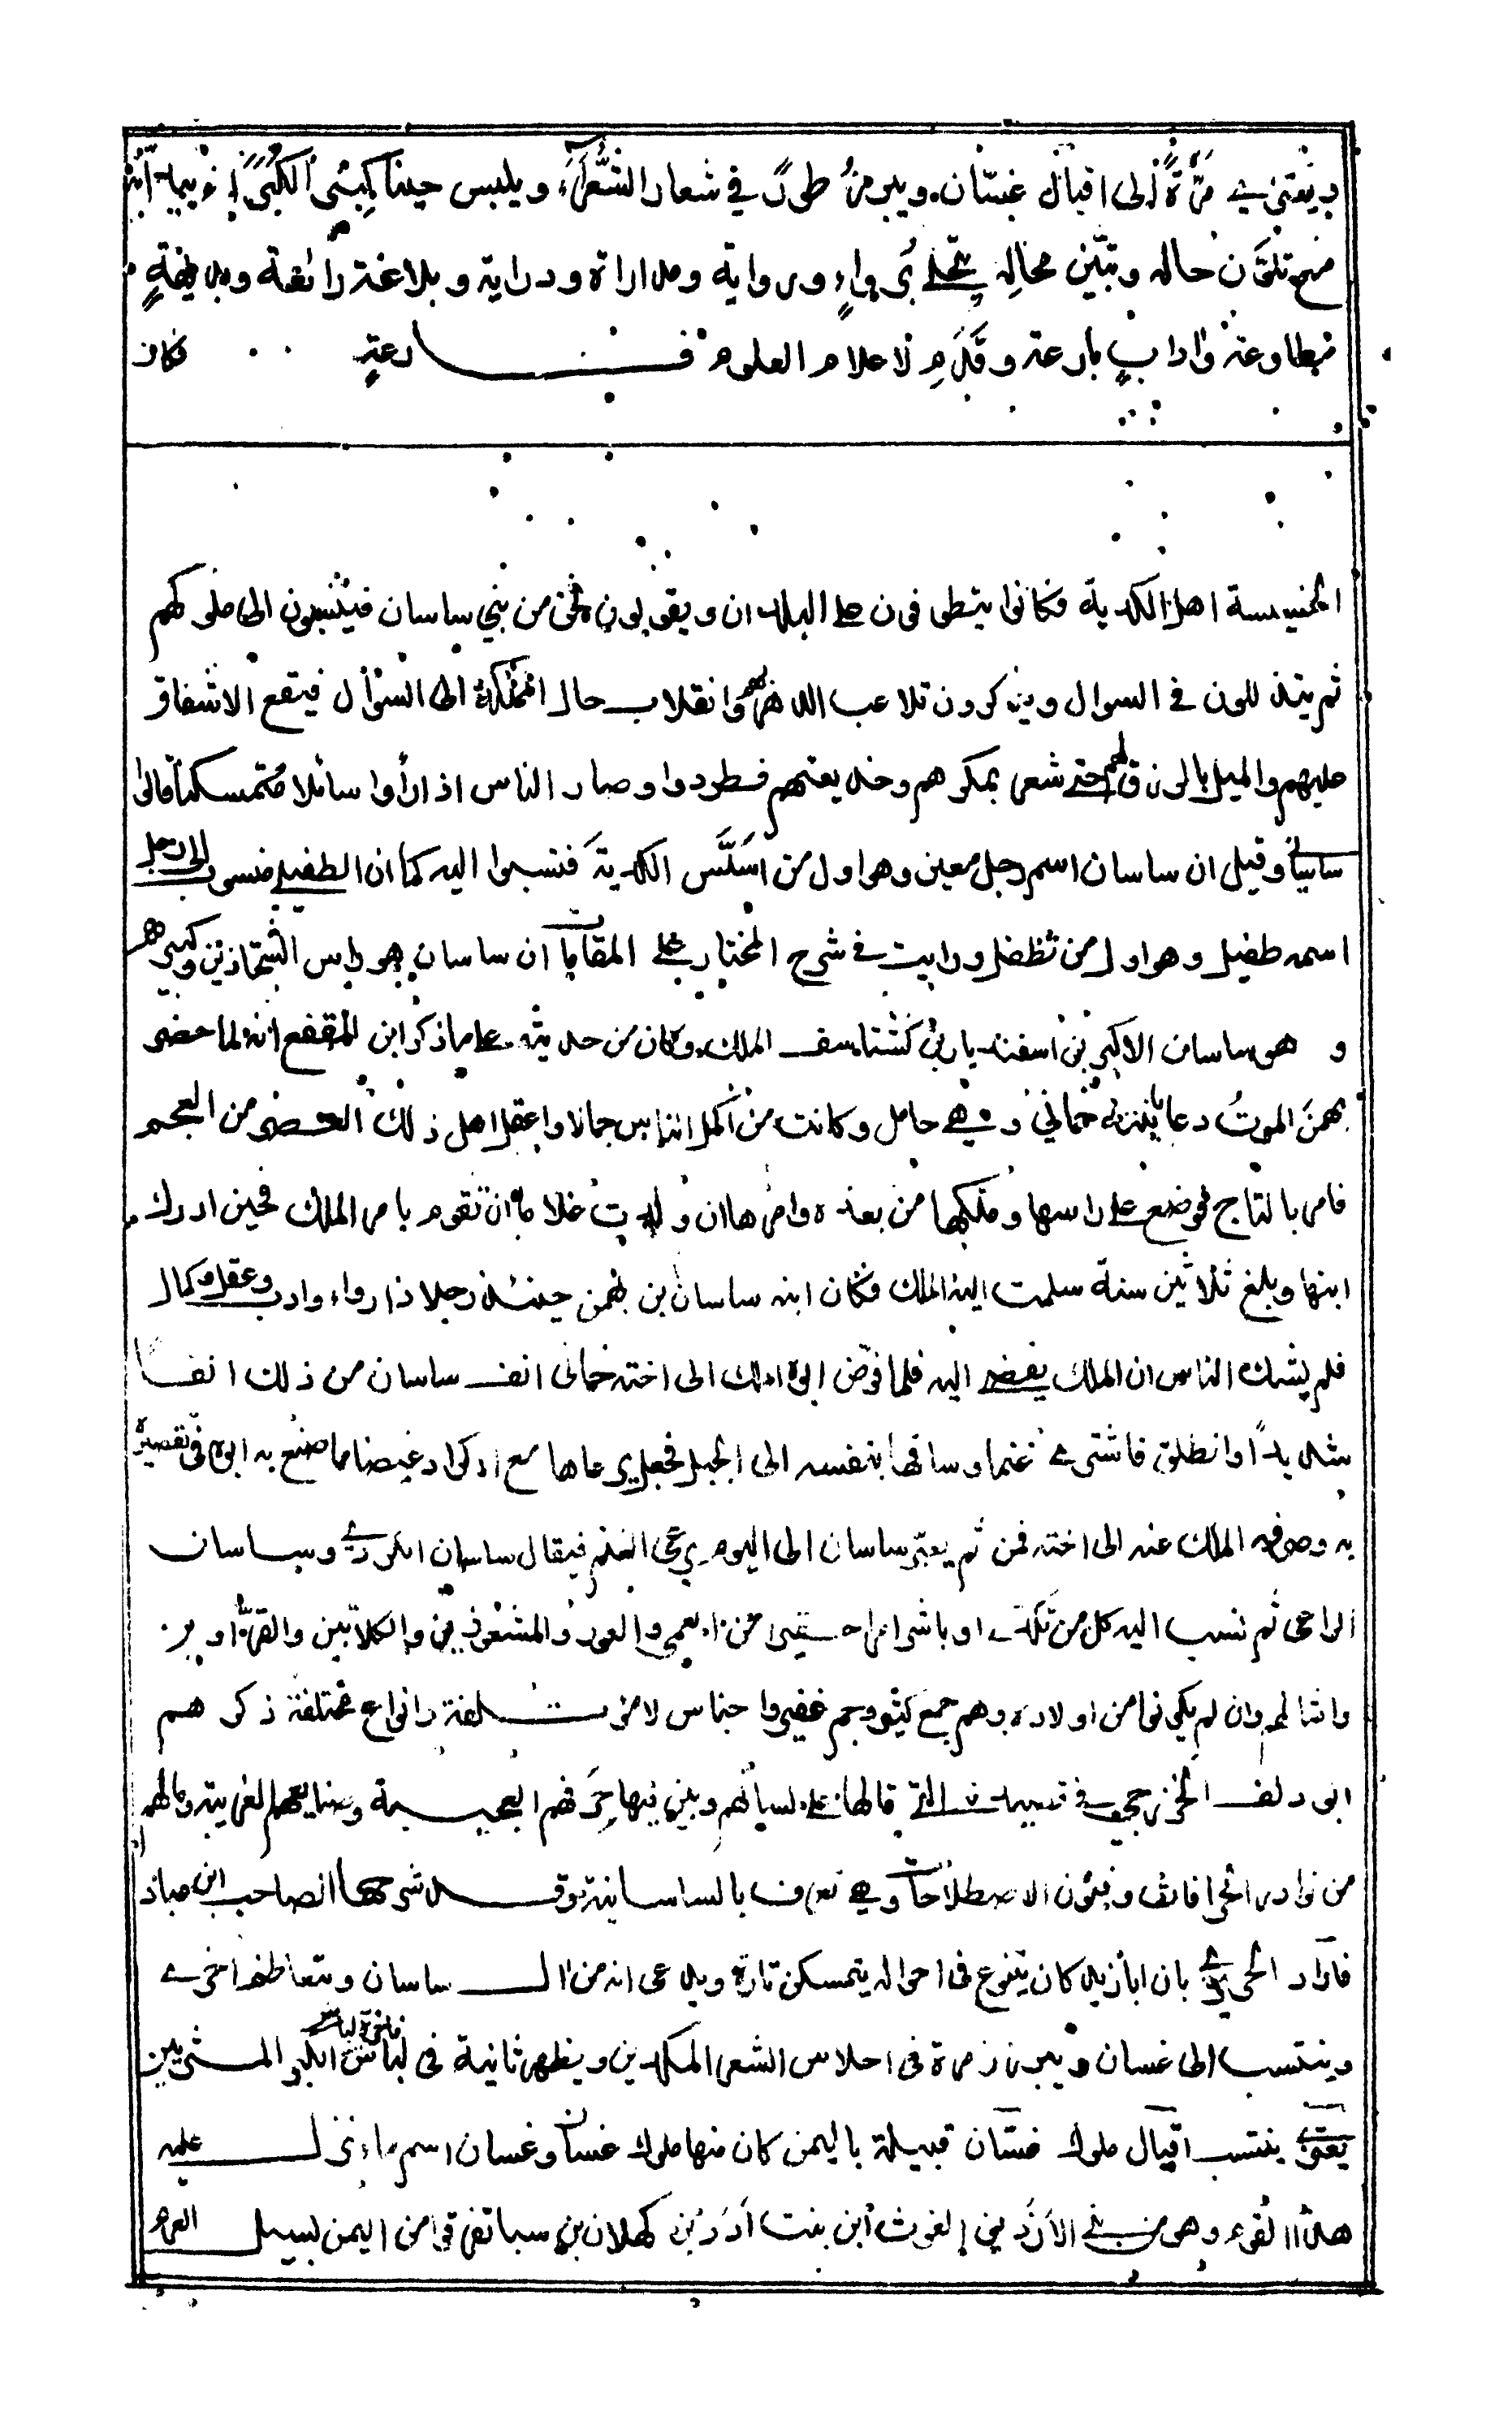 ويعتزي مرة الى اقيال غسان ويبرز طورا في شعار الشعراء ويلبس حينا كبر الكبراء بيد انه
مع تلون حاله وتبين محاله يتحلى برواء ورواية ومداراة ودراية وبلاغة رائعة وبديهة
مطاوعة واداب بارعة وقدم لاعلام العلوم فارعة فكان
الخسيسة اهل الكدية فكانوا يتطوفون على البلدان ويقولون نحن من بني ساسان فينتسبون الى ملوكهم
ثم يتذللون في السوال ويذكرون تلاعب الدهر بهم وانقلاب حال المملكة الى السؤال فيقع الاشفاق
عليهم والميل بالرزق لهم حتى شعر بمكرهم وخديعتهم فطردوا وصار الناس اذا رأوا سائلا متمسكنا قالوا
ساسانيا وقيل ان ساسان اسم رجل معين وهو اول من اسس الكدية فنسبوا اليه كما ان الطفيلي منسوب الى رجل
اسمه طفيل وهو اول من تطفل ورايت في شرح المختار على المقامات ان ساسان هو راس الشحاذين وكبيرهم
و هو ساسان الاكبر بن اسفنديار بن كشتاسف الملك وكان من حديثه على ما ذكر ابن المقفع انه لما حضر
بهمن الموت دعا بابنته خماني وهي حامل وكانت من اكمل الناس جمالا واعقل اهل ذلك العصر من العجم
فامر بالتاج فوضع على راسها وملكها من بعده وامرها ان ولدت غلاما ان تقوم بامر الملك فحين ادرك
ابنها وبلغ ثلاثين سنة سلمت اليه الملك فكان ابنه ساسان بن بهمن حينئذ رجلا ذا رواء وادب وعقل وكمال
فلم يشك الناس ان الملك يفضى اليه فلما فوض ابوه الملك الى اخته خمانى انف ساسان من ذلك انفا
شديدا وانطلق فاشترى غنما وساقها بنفسه الى الجبل فجعل يرعاها مع الاكراد غيضا مما صنع به ابوه في تقصيره
به وصرفه الملك عنه الى اخته فمن ثم يعير ساسان الى اليوم برعى الغنم فيقال ساسان الكردي وساسان
الراعى ثم نسب اليه كل من تكدى او باشر امرا حقيرا من العمي والعور والمشعوذين والكلابين والقرادين
وامثالهم وان لم يكونوا من اولاده وهم جمع كثير وجم غفير واجناس مختلفة وانواع مختلفة ذكرهم
ابو دلف الخزرجي في قصيدته التي قالها على لسانهم وبين فيها حرفهم العجيبة وصنايعهم الغريبة ومالهم
من نوادر الخرافات وفنون الاصطلاحات وهي تعرف بالساسانية وقد شرحها الصاحب ابن عباد
فاراد الحريري بان ابا زيد كان يتنوع في احواله يتمسكن تارة ويدعى انه من ال ساسان ويتعاظم اخرى
وينتسب الى غسان ويبرز مرة فى احلاس الشعر المكدين ويظهر ثانية فى لباس الكبر المثريين
يعتزي ينتسب اقيال ملوك غسان قبيلة باليمن كان منها ملوك غسان وغسان اسم ماء نزل عليه
هذا القوم وهو من بني الازد بن الغوث ابن بنت ادد بن كهلان بن سبا تفرقوا من اليمن لسيل العرم